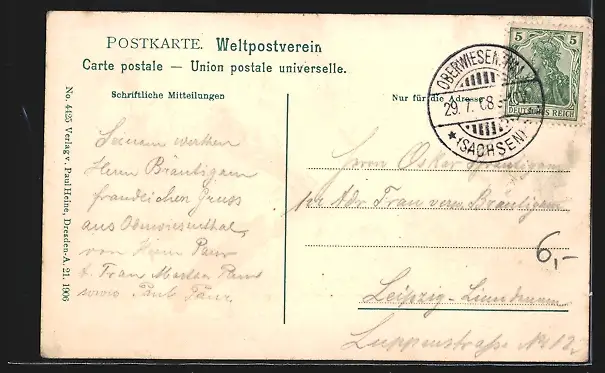 POSTKARTE. Weltpostverein
Carte postale — Union postale universelle.
Schriftliche Mitteilungen
Nur für die Adresse
No. 4425 Verlag v. Paul Heine, Dresden-A. 21. 1906
OBERWIESENTHAL
29.7.08
* (SACHSEN) *
5 5
DEUTSCHES REICH
Seinem werthen
Herrn Bräutigam
freundlichen Gruss
aus Oberwiesenthal,
von Herrn Paur
u. Frau Martha Paur
sowie Paul Paur.
Herrn Oskar Bräutigam
Adr Frau verw. Bräutigam
Leipzig-Lindenau
Luppenstraße No 12
6,-